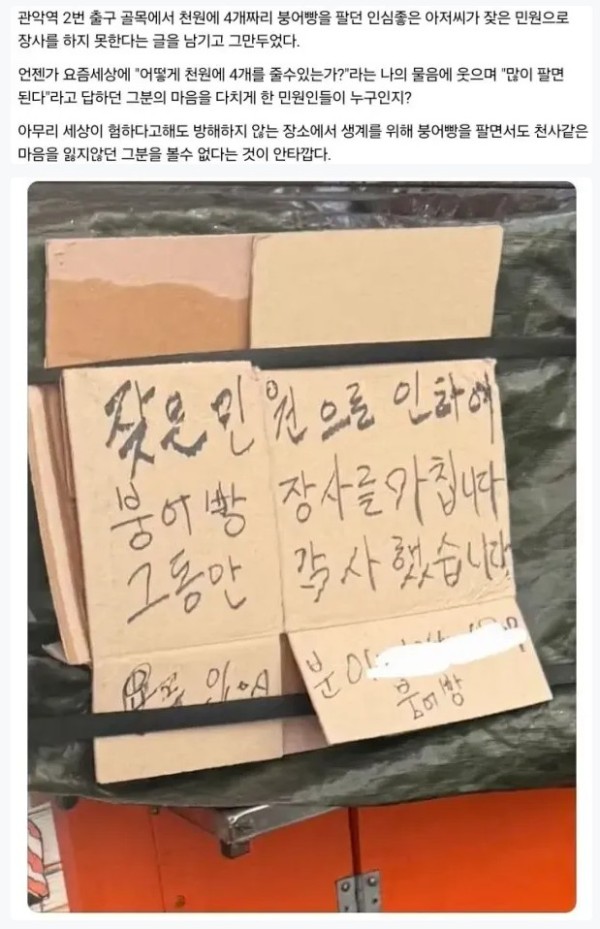 관악역 2번 출구 골목에서 천원에 4개짜리 붕어빵을 팔던 인심좋은 아저씨가 잦은 민원으로
장사를 하지 못한다는 글을 남기고 그만두었다.
언젠가 요즘세상에 "어떻게 천원에 4개를 줄수있는가?"라는 나의 물음에 웃으며 "많이 팔면
된다"라고 답하던 그분의 마음을 다치게 한 민원인들이 누구인지?
아무리 세상이 험하다고해도 방해하지 않는 장소에서 생계를 위해 붕어빵을 팔면서도 천사같은
마음을 잃지않던 그분을 볼수 없다는 것이 안타깝다.
잦은 민원으로 인하여
붕어빵 장사를 마칩니다
그동안 감사했습니다
붕어빵